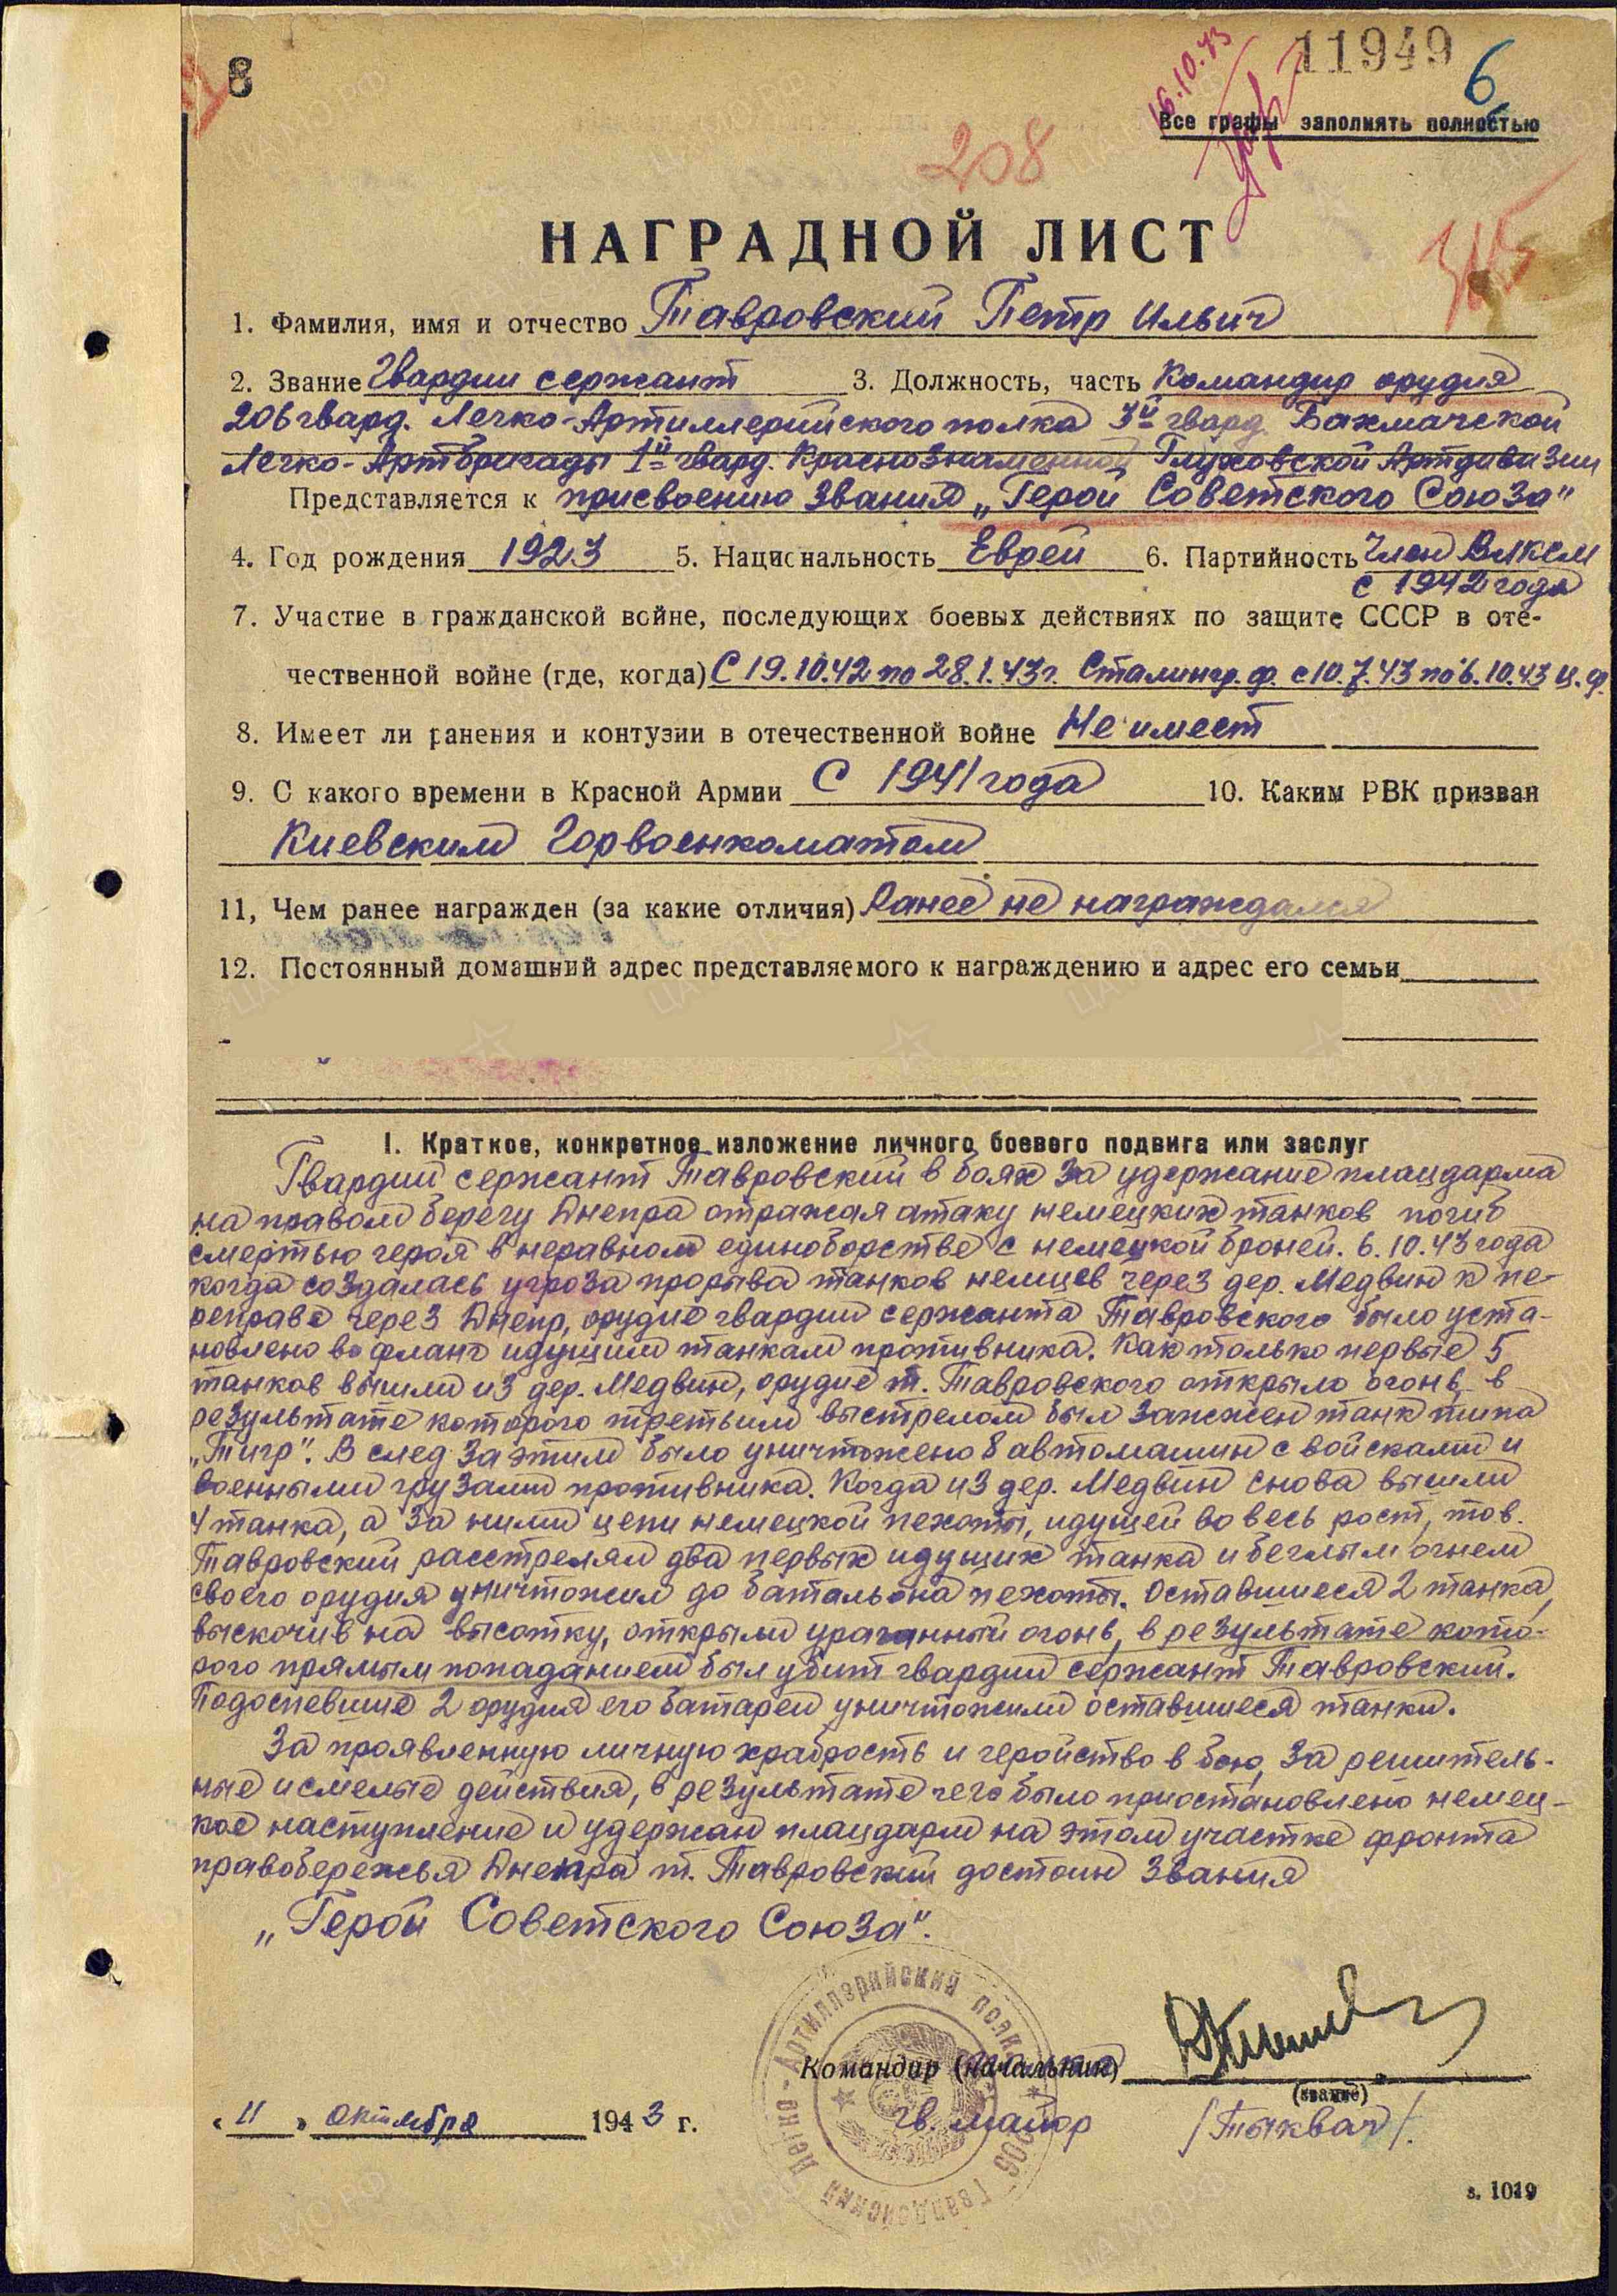 8
16.10.43
11949
6
Все графы заполнять полностью
208
НАГРАДНОЙ ЛИСТ
1. Фамилия, имя и отчество Тавровский Петр Ильич
2. Звание Гвардии сержант 3. Должность, часть Командир орудия
206 гвард. Легко-Артиллерийского полка 3й гвард. Бахмачской
Легко-Артбригады 1й гвард. Краснознаменной Глуховской Артдивизии
Представляется к присвоению звания „Герой Советского Союза"
4. Год рождения 1923 5. Национальность Еврей 6. Партийность Член ВЛКСМ
с 1942 года
7. Участие в гражданской войне, последующих боевых действиях по защите СССР в оте-
чественной войне (где, когда) С 19.10.42 по 28.1.43г. Сталингр. ф. с 10.7.43 по 6.10.43 Ц.ф.
8. Имеет ли ранения и контузии в отечественной войне Не имеет
9. С какого времени в Красной Армии С 1941 года 10. Каким РВК призван
Киевским Горвоенкоматом
11, Чем ранее награжден (за какие отличия) Ранее не награждался
12. Постоянный домашний адрес представляемого к награждению и адрес его семьи
I. Краткое, конкретное изложение личного боевого подвига или заслуг
Гвардий сержант Тавровский в боях за удержание плацдарма
на правом берегу Днепра отражая атаку немецких танков погиб
смертью героя в неравном единоборстве с немецкой броней. 6.10.43 года
когда создалась угроза прорыва танков немцев через дер. Медвин к пе-
реправе через Днепр, орудие гвардии сержанта Тавровского было уста-
новлено во фланг идущим танкам противника. Как только первые 5
танков вышли из дер. Медвин, орудие т. Тавровского открыло огонь, в
результате которого третьим выстрелом был зажжен танк типа
„Тигр". В след за этим было уничтожено 8 автомашин с войсками и
военными грузами противника. Когда из дер. Медвин снова вышли
4 танка, а за ними цепи немецкой пехоты, идущей во весь рост, тов.
Тавровский расстрелял два первых идущих танка и беглым огнем
своего орудия уничтожил до батальона пехоты. Оставшиеся 2 танка,
выскочив на высотку, открыли ураганный огонь, в результате кото-
рого прямым попаданием был убит гвардии сержант Тавровский.
Подоспевшие 2 орудия его батареи уничтожили оставшиеся танки.
За проявленную личную храбрость и геройство в бою, за решитель-
ные и смелые действия, в результате чего было приостановлено немец-
кое наступление и удержан плацдарм на этом участке фронта
правобережья Днепра т. Тавровский достоин звания
„Герой Советского Союза".
Легко-Артиллерийский полк
206 Гвардейский
Командир (начальник)
(звание)
гв. майор /Тыквач/.
« 11 » октября 1943 г.
з. 1019